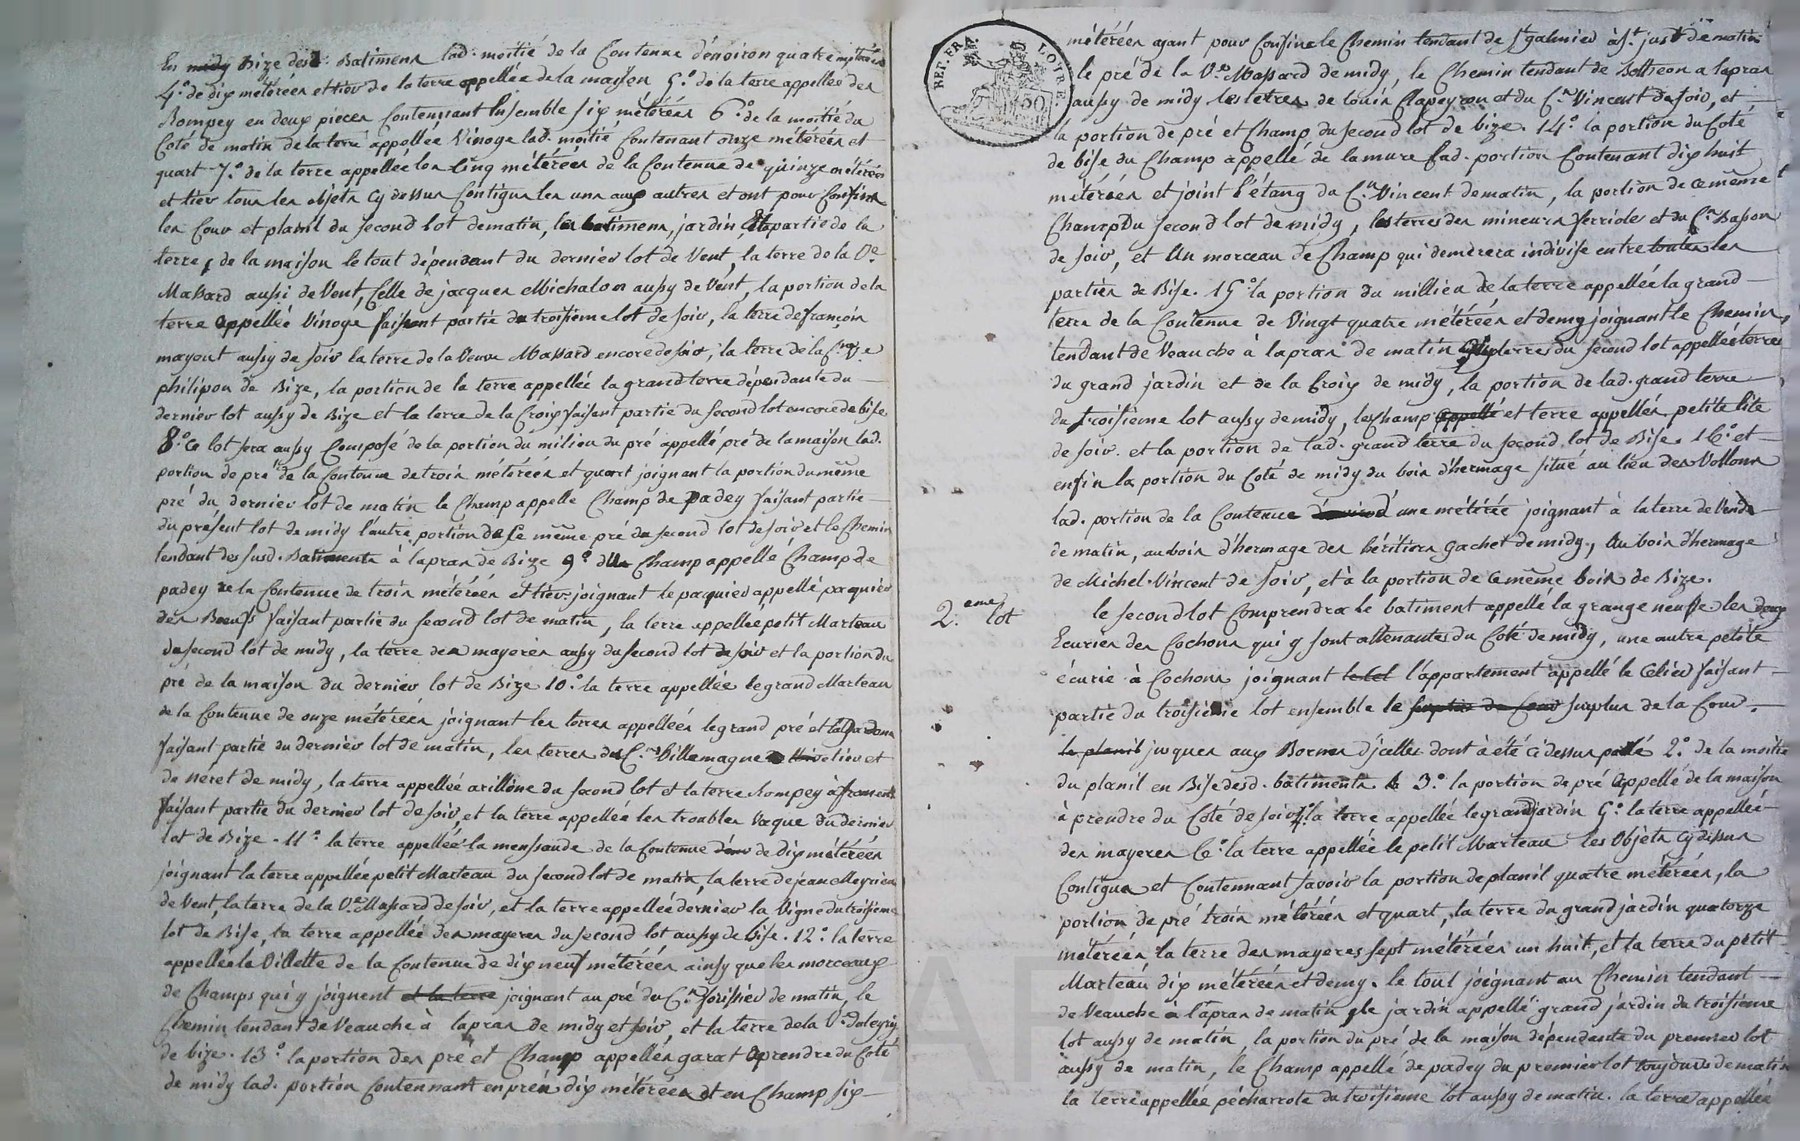 En midy Bize desd. Batimens lad. moitié de la Contenue d'environ quatre métérées
4.° de dix métérées et tiers de la terre appellée de la maison 5.° de la terre appellée des
Rompey en deux pieces Contennant Ensemble six métérées 6.° de la moitié du
Coté de matin de la terre appellée Vinoge lad. moitié Contenant onze métérées et
quart 7.° de la terre appellée les Cinq métérées de la Contenue de quinze métérées
et tiers tous les objets cy dessus Contigus les uns aux autres et ont pour Confins
les Cour et planil du second lot de matin, les batimens, jardin, et partie de la
terre, de la maison le tout dépendant du dernier lot de Vent, la terre de la V.e
Massard aussi de Vent, Celle de jacques Michalon aussy de Vent, la portion de la
terre appellée Vinoge faisant partie du troisieme lot de soir, la terre de françois
mayout aussy de soir la terre de la Veuve Massard encore de soir, la terre de la C.ne V.e
philipon de Bize, la portion de la terre appellée la grand terre dépendante du
dernier lot aussy de Bize et la terre de la Croix faisant partie du second lot encore de bise
8.° Ce lot sera aussy Composé de la portion du milieu du pré appellé pré de la maison lad.
portion de pré de la Contenue de trois métérées et quart joignant la portion du même
pré du dernier lot de matin le Champ appelle Champ de padey faisant partie
du présent lot de midy l'autre portion de ce même pré du second lot de soir et le Chemin
tendant des susd. Batiments à lapras de Bize 9.° du Champ appellé Champ de
padey de la Contenue de trois métérées et tiers joignant le paquier appellé paquier
des Boeufs faisant partie du second lot de matin, la terre appellée petit Marteau
du second lot de midy, la terre des mayeres aussy du second lot de soir et la portion du
pré de la maison du dernier lot de Bize 10.° la terre appellée le grand Marteau
de la Contenue de onze métérées joignant les terres appellées le grand pré et
faisant partie du dernier lot de matin, les terres du C.n Villemagne et
de neret de midy, la terre appellée arillone du second lot et la terre Rompey à froment
faisant partie du dernier lot de soir, et la terre appellée les troubles Vaque du dernier
lot de Bize. 11.° la terre appellée la menssaude de la Contenue de dix métérées
joignant la terre appellée petit Marteau du second lot de matin, la terre de jean Meyrieu
de Vent, la terre de la V.e Massard de soir, et la terre appellée dernier la Vigne du troisieme
lot de Bise, la terre appellée des mayeres du second lot aussy de bise. 12.° la terre
appellée la Villette de la Contenue de dix neuf métérées ainsy que les morceaux
de Champs qui y joignent et la terre joignant au pré du C.n forissier de matin, le
Chemin tendant de Veauche à lapras de midy et soir, et la terre de la V.e
de bize. 13.° la portion des pré et Champ appellés garat à prendre du Coté
de midy lad. portion Contennant en prés dix métérées et en Champ six
RET. ET RA. LOIRE.
50
métérées ayant pour Confins le Chemin tendant de St galmier à St just de matin
le pré de la V.e Massard de midy, le Chemin tendant de Bothéon a lapras
aussy de midy les terres de louis Clapeyron et du C.n Vincent de soir, et
la portion de pré et Champ du second lot de bize. 14.° la portion du Coté
de bise du Champ appellé de la mure lad. portion Contenant dix huit
métérées et joint l'étang du C.n Vincent de matin, la portion de ce même
Champ du second lot de midy, les terres des mineurs ferriole et du C.n Basson
de soir, et Un morceau de Champ qui demerera indivise entre toutes les
parties de Bise. 15.° la portion du milieu de la terre appellée la grand
terre de la Contenue de Vingt quatre métérées et demy joignant le Chemin
tendant de Veauche à lapras de matin les terres du second lot appellées terres
du grand jardin et de la Croix de midy, la portion de lad. grand terre
du troisième lot aussy de midy, le champ appellé et terre appellés petite lite
de soir. et la portion de lad. grand terre du second lot de Bise. 16.° et
enfin la portion du Coté de midy du bois d'hermage situé au lieu des Vollons
lad. portion de la Contenue d'une métérée joignant à la terre de Vende
de matin, au bois d'hermage des héritiers gachet de midy, Au bois d'hermage
de Michel Vincent de soir, et à la portion de ce même bois de Bize.
2.eme lot
le second lot Comprendra le batiment appellé la grange neuffe les deux
Ecuries des Cochons qui y sont attenantes du Coté de midy, une autre petite
écurie à Cochons joignant le Cel l'appartement appellé le Celier faisant
partie du troisième lot ensemble le surplus de Cour surplus de la Cour,
le planil jusques aux Bornes d'icelles dont à été ci dessus parlé 2.° de la moitié
du planil en Bise desd. batiments 3.° la portion de pré appellé de la maison
à prendre du Coté de soir 4.° la terre appellée le grand jardin 5.° la terre appellée
des mayeres 6.° la terre appellée le petit Marteau les Objets cy dessus
Contigus et Contennant savoir la portion de planil quatre métérées, la
portion de pré trois métérées et quart, la terre du grand jardin quatorze
métérées la terre des mayeres sept métérées un huit, et la terre du petit
Marteau dix métérées et demy. le tout joignant au Chemin tendant
de Veauche à lapras de matin le jardin appellé grand jardin du troisième
lot aussy de matin, la portion du pré de la maison dépendante du premier lot
aussy de matin, le Champ appellé de padey du premier lot toujours de matin
la terre appellée pécharrote du troisième lot aussy de matin. la terre appellée